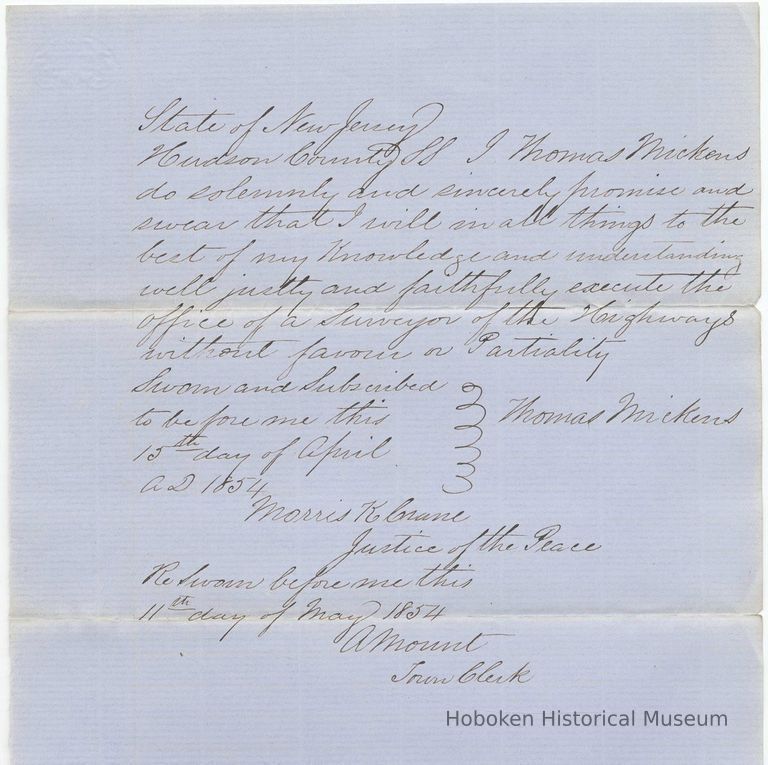 State of New Jersey
Hudson County SS I Thomas Mickens
do solemnly and sincerely promise and
swear that I will in all things to the
best of my Knowledge and understanding
well justly and faithfully execute the
office of a Surveyor of the Highways
without favour or Partiality
Sworn and Subscribed
to before me this
Thomas Mickens
15th day of April
AD 1854
Morris K Crane
Justice of the Peace
Re Sworn before me this
11th day of May 1854
A Mount
Town Clerk
Hoboken Historical Museum